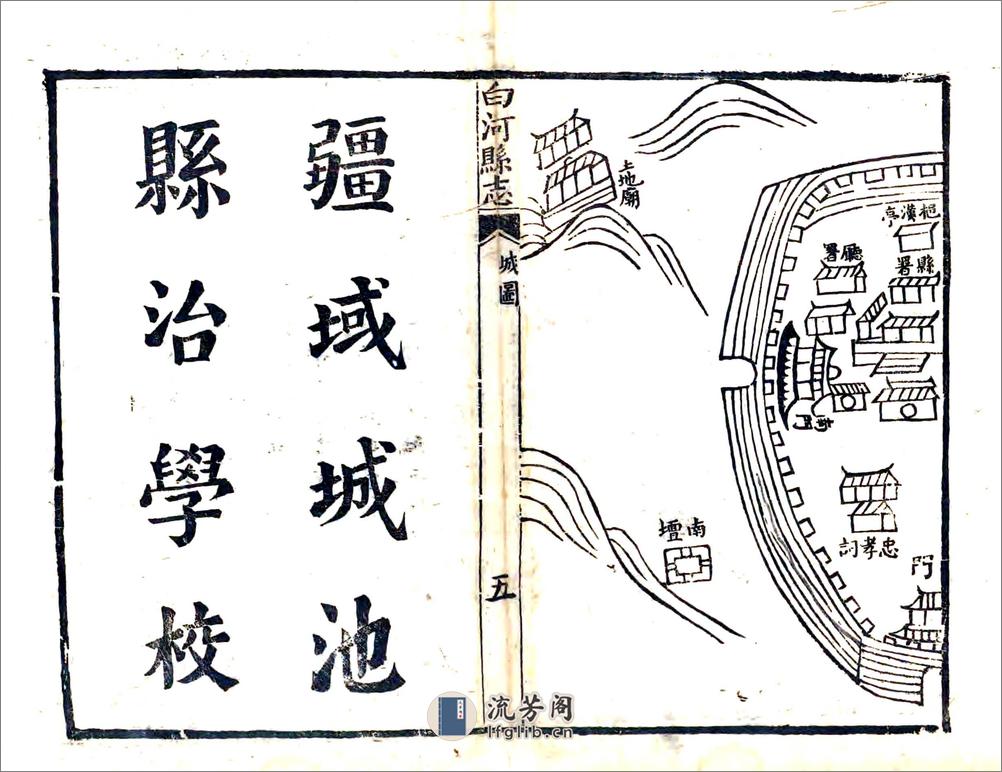 挹漢亭
縣署
廳署
忠孝祠
門
土地廟
南壇
白河縣志
城圖
五
疆域城池
縣治學校
流芳阁
lfglib.cn